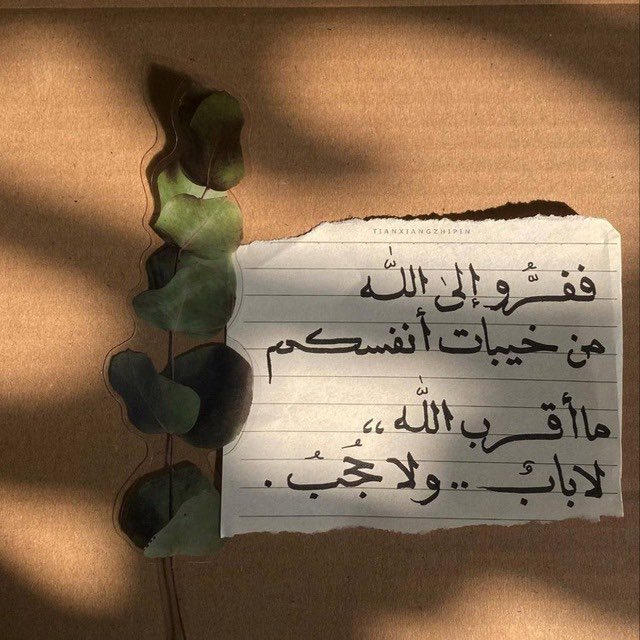 TIANXIANGZHIPIN
ففرُّو إلىٰ اللّٰه
من خيبات أنفسكم
ما أقرب اللّٰه ،،
لا بابُ .. ولا حُجُبُ .